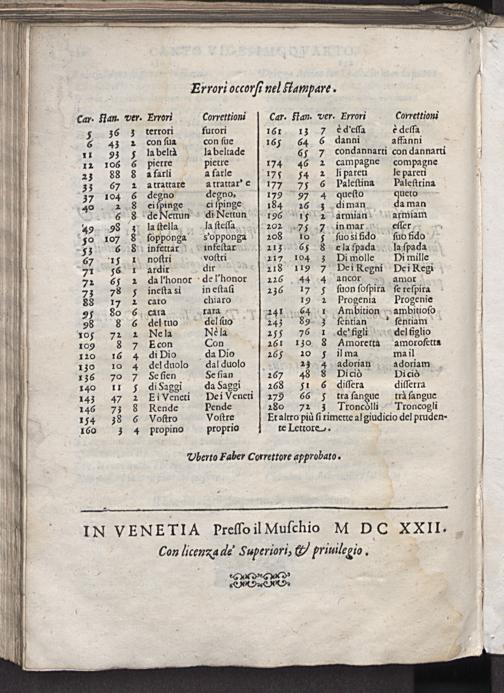 Errori occorsi nel stampare.
Car. stan. ver. Errori Correttioni
5 36 3 terrori furori
6 43 2 con sua con sue
11 93 5 la beltà la beltade
12 106 6 pietre pietre
23 88 8 a farli a farle
33 67 2 a trattare a trattar' e
37 104 6 degno degno,
40 2 8 ei spinge ei spinge
6 8 de Nettun di Nettun
49 98 3 la stella la stessa
50 107 8 sopponga s'opponga
53 6 8 infettar infestar
67 15 1 nostri vostri
71 56 1 ardir dir
72 65 2 da l'honor de l'honor
73 78 5 inesta si in estasi
88 17 2 caro chiaro
95 80 6 cara rara
98 8 6 del tuo del suo
105 72 2 Ne la Nè la
109 8 7 E con Con
120 16 4 di Dio da Dio
130 10 4 del duolo dal duolo
136 70 7 Se sien Se sian
140 11 5 di Saggi da Saggi
143 47 2 E i Veneti De i Veneti
146 73 8 Rende Pende
154 38 6 Vostro Vostre
160 3 4 propino proprio
Car. stan. ver. Errori Correttioni
161 13 7 è d'essa è dessa
165 64 6 danni affanni
65 7 condannarti con dannarti
174 46 2 campagne compagne
175 54 2 li pareti le pareti
177 75 6 Palestina Palestrina
179 97 4 questo queto
184 26 3 di man da man
196 15 2 armian armiam
202 75 7 in mar esser
208 10 5 suo si fido suo fido
213 65 8 e la spada la spada
217 104 3 Di molle Di mille
218 119 7 Dei Regni Dei Regi
226 44 4 ancor amor
236 17 5 suon sospira se respira
19 2 Progenia Progenie
241 64 1 Ambition ambitioso
243 89 3 sentian sentiam
255 76 2 de' figli del figlio
261 130 8 Amoretta amorosetta
265 20 5 il ma ma il
23 4 adorian adoriam
267 48 8 Di ciò Di ciò
268 51 6 dissera disserra
279 66 5 tra sangue trà sangue
280 72 3 Troncolli Troncogli
Et altro più si rimette al giudicio del pruden-
te Lettore.
Vberto Faber Correttore approbato.
IN VENETIA Presso il Muschio M DC XXII.
Con licenza de' Superiori, & priuilegio.